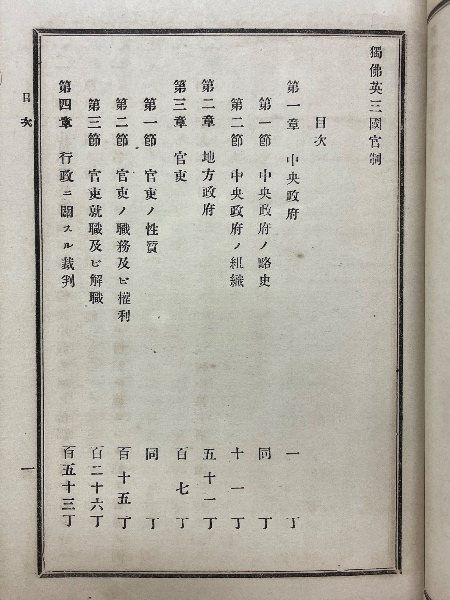 獨佛英三國官制
目次
第一章 中央政府 一丁
第一節 中央政府ノ略史 同丁
第二節 中央政府ノ組織 十一丁
第二章 地方政府 五十一丁
第三章 官吏 百七丁
第一節 官吏ノ性質 同丁
第二節 官吏ノ職務及ヒ權利 百十五丁
第三節 官吏就職及ヒ解職 百二十六丁
第四章 行政ニ關スル裁判 百五十三丁
目次
一